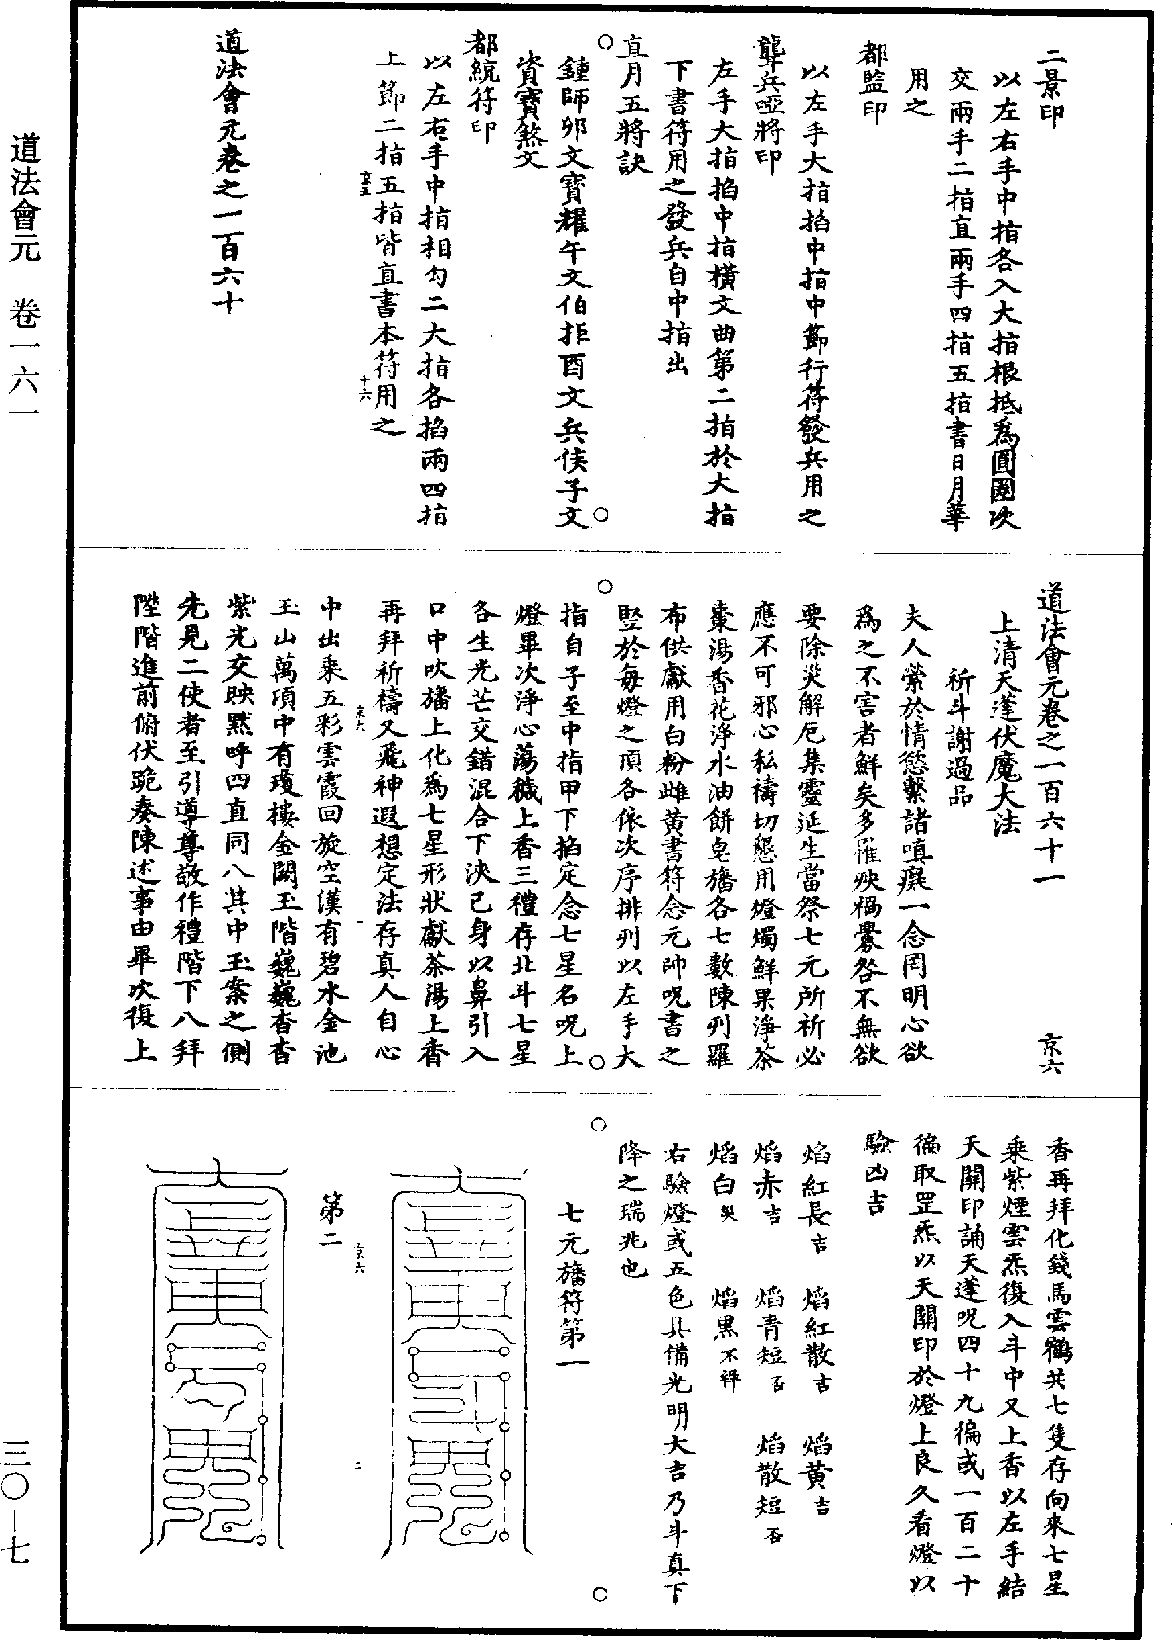 道法會元　卷一六一
三〇—七
二景印
以左右手中指各入大指根抵為圓圈次
交兩手二指直兩手四指五指書日月華
用之
都監印
以左手大指掐中指中節行符發兵用之
聾兵啞將印
左手大指掐中指橫文曲第二指於大指
下書符用之發兵自中指出
直月五將訣
鍾師卯文寶耀午文伯拒酉文兵侯子文
資寶煞文
都統符印
以左右手中指相勾二大指各掐兩四指
上節二指五指皆直書本符用之
十六
道法會元卷之一百六十
道法會元卷之一百六十一　京六
上清天蓬伏魔大法
祈斗謝過品
夫人縈於情慾繫諸嗔癡一念罔明心欲
為之不害者鮮矣多罹殃禍釁咎不無欲
要除災解厄集靈延生當祭七元所祈必
應不可邪心私禱切懇用燈燭鮮果淨茶
棗湯香花淨水油餅皂旛各七數陳列羅
布供獻用白粉雌黃書符念元帥呪書之
竪於每燈之頂各依次序排列以左手大
指自子至中指甲下掐定念七星名呪上
燈畢次淨心蕩穢上香三禮存北斗七星
各生光芒交錯混合下浹己身以鼻引入
口中吹旛上化為七星形狀獻茶湯上香
再拜祈禱又飛神遐想定法存真人自心
京六　一
中出乘五彩雲霞回旋空漢有碧水金池
玉山萬頃中有瓊樓金闕玉階巍巍杳杳
紫光交映黙呼四直同八其中玉案之側
先見二使者至引導尊敬作禮階下八拜
陛階進前俯伏跪奏陳述事由畢次復上
香再拜化錢馬雲鶴共七隻存向來七星
乘紫煙雲炁復入斗中又上香以左手結
天關印誦天蓬呪四十九徧或一百二十
徧取罡炁以天關印於燈上良久看燈以
驗凶吉
焰紅長吉　焰紅散吉　焰黃吉
焰赤吉　焰青短否　焰散短否
焰白哭　焰黑不祥
右驗燈或五色具備光明大吉乃斗真下
降之瑞兆也
七元旛符第一
京六　二
第二